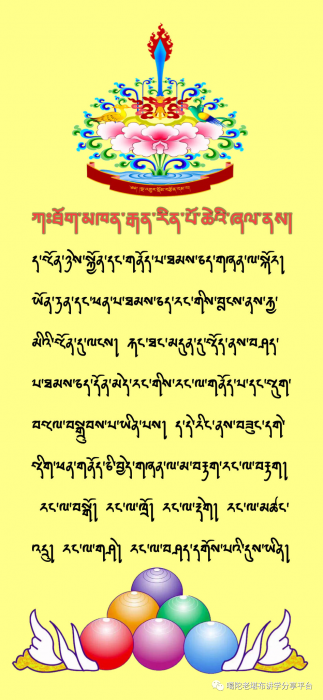 ཀཿཐོག་མཁན་རྒན་རིན་པོ་ཆེའི་ཞལ་ནས།
ད་ཕྱོན་ཉེས་སྐྱོན་དང་གནོད་པ་ཐམས་ཅད་གཞན་ལ་སྐོར།
ཡོན་ཏན་དང་ཕན་པ་ཐམས་ཅད་རང་གིས་བླངས་ནས་རྒྱ་
མིའི་ཕྱོན་དུ་ལངས། རྐང་ཐང་མདུན་དུ་བོད་ནས་བཤད་
པ་ཐམས་ཅད་དོན་མེད་རང་གིས་རང་ལ་གནོད་པ་དང་སྡུག་
བསྔལ་བསྒྲུབས་པ་ཡིན་པས། ད་དེ་རིང་ནས་བཟུང་དགེ་
སྡིག་ཕན་གནོད་ཅི་བྱེད་གཞན་ལ་མ་བརྟག་རང་ལ་བརྟག།
རང་ལ་བསྒོ། རང་ལ་ཁྲོ། རང་ལ་རྡེག། རང་ལ་མཚང་
འདྲུ། རང་ལ་གཤེ། རང་ལ་བཤད་དགོས་པའི་དུས་ཡིན།
嘎陀老堪布讲学分享平台